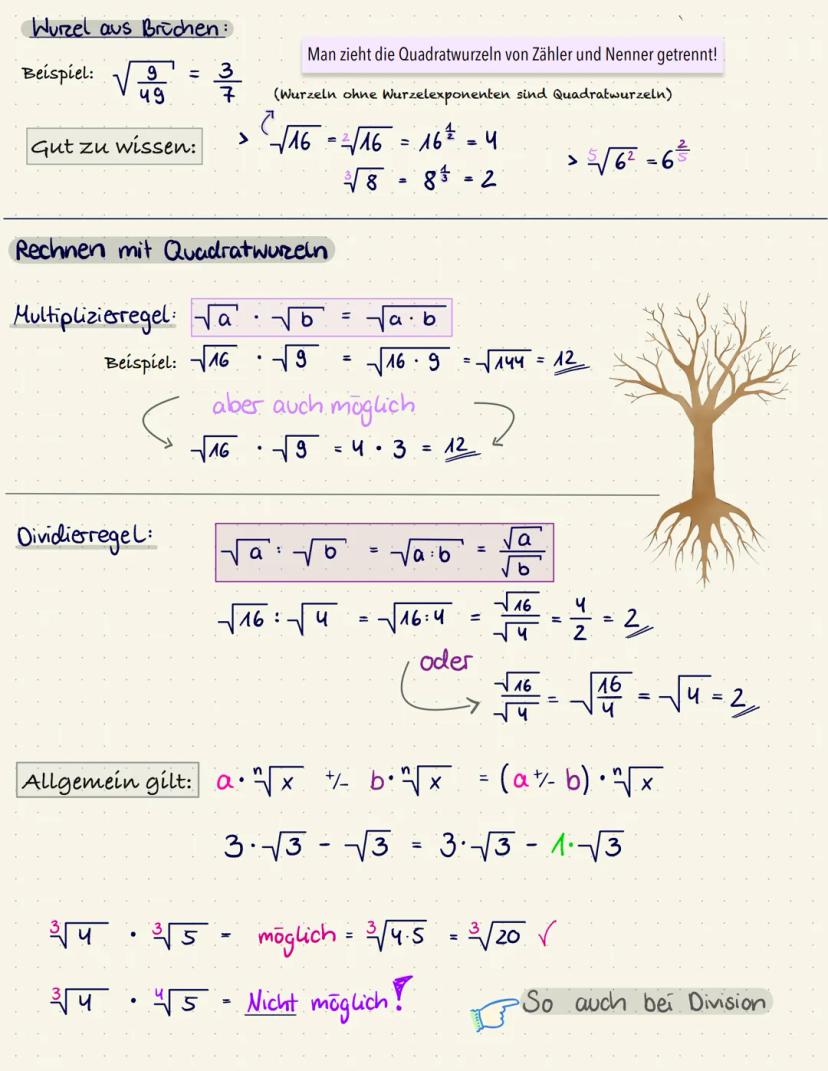 Wurzel aus Brüchen:
Man zieht die Quadratwurzeln von Zähler und Nenner getrennt!
Beispiel: √(9/49) = 3/7
(Wurzeln ohne Wurzelexponenten sind Quadratwurzeln)
Gut zu wissen: > √16 = ²√16 = 16^(1/2) = 4
> ⁵√6² = 6^(2/5)
³√8 = 8^(1/3) = 2
Rechnen mit Quadratwurzeln
Multiplizierregel: √a · √b = √(a · b)
Beispiel: √16 · √9 = √(16 · 9) = √144 = 12
aber auch möglich
√16 · √9 = 4 · 3 = 12
Dividierregel: √a : √b = √(a:b) = √a/√b
√16 : √4 = √(16:4) = √16/√4 = 4/2 = 2
oder
√16/√4 = √(16/4) = √4 = 2
Allgemein gilt: a · ⁿ√x +/- b · ⁿ√x = (a +/- b) · ⁿ√x
3·√3 - √3 = 3·√3 - 1·√3
³√4 · ³√5 = möglich = ³√(4·5) = ³√20 ✓
³√4 · ⁴√5 = Nicht möglich!
So auch bei Division